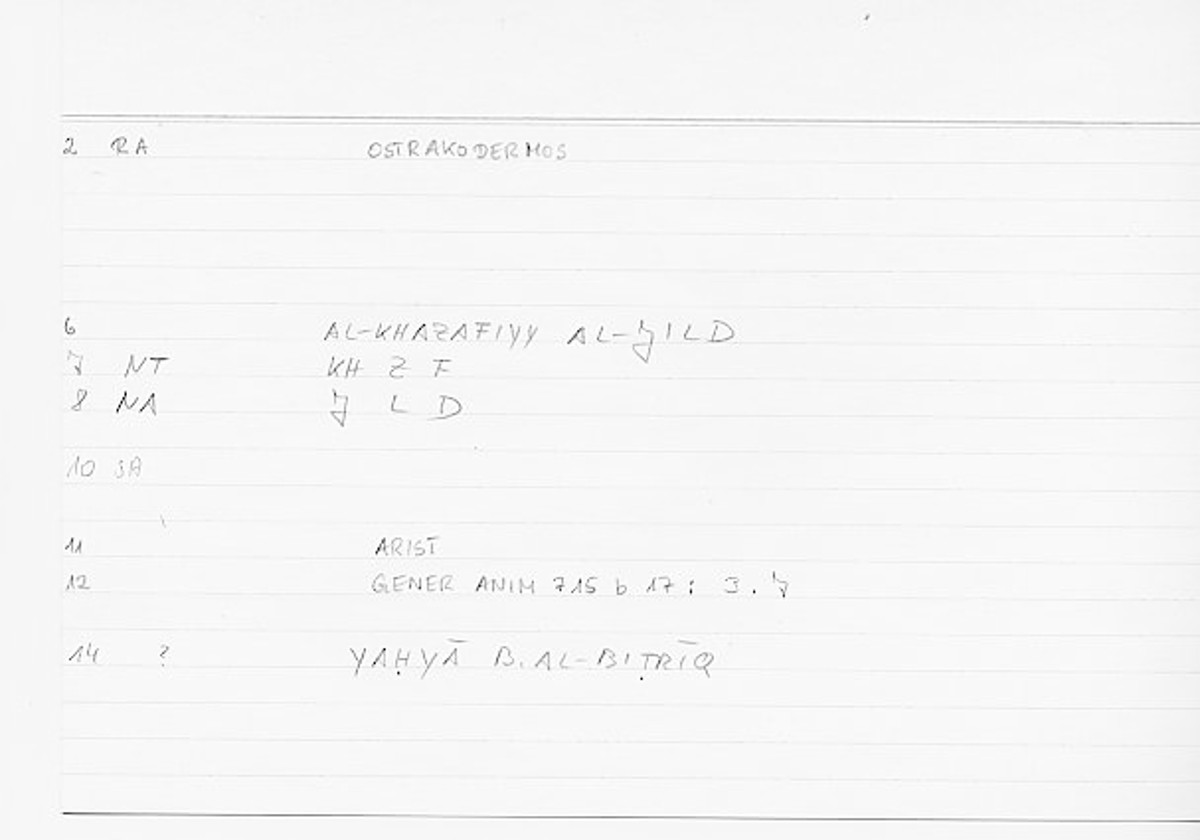 2 RA OSTRAKODERMOS
6 AL-KHAZAFIYY AL-JILD
7 NT KH Z F
8 NA J L D
10 SA
11 ARIST
12 GENER ANIM 715 b 17 : 3 . 7
14 ? YAḤYĀ B. AL-BIṬRĪQ